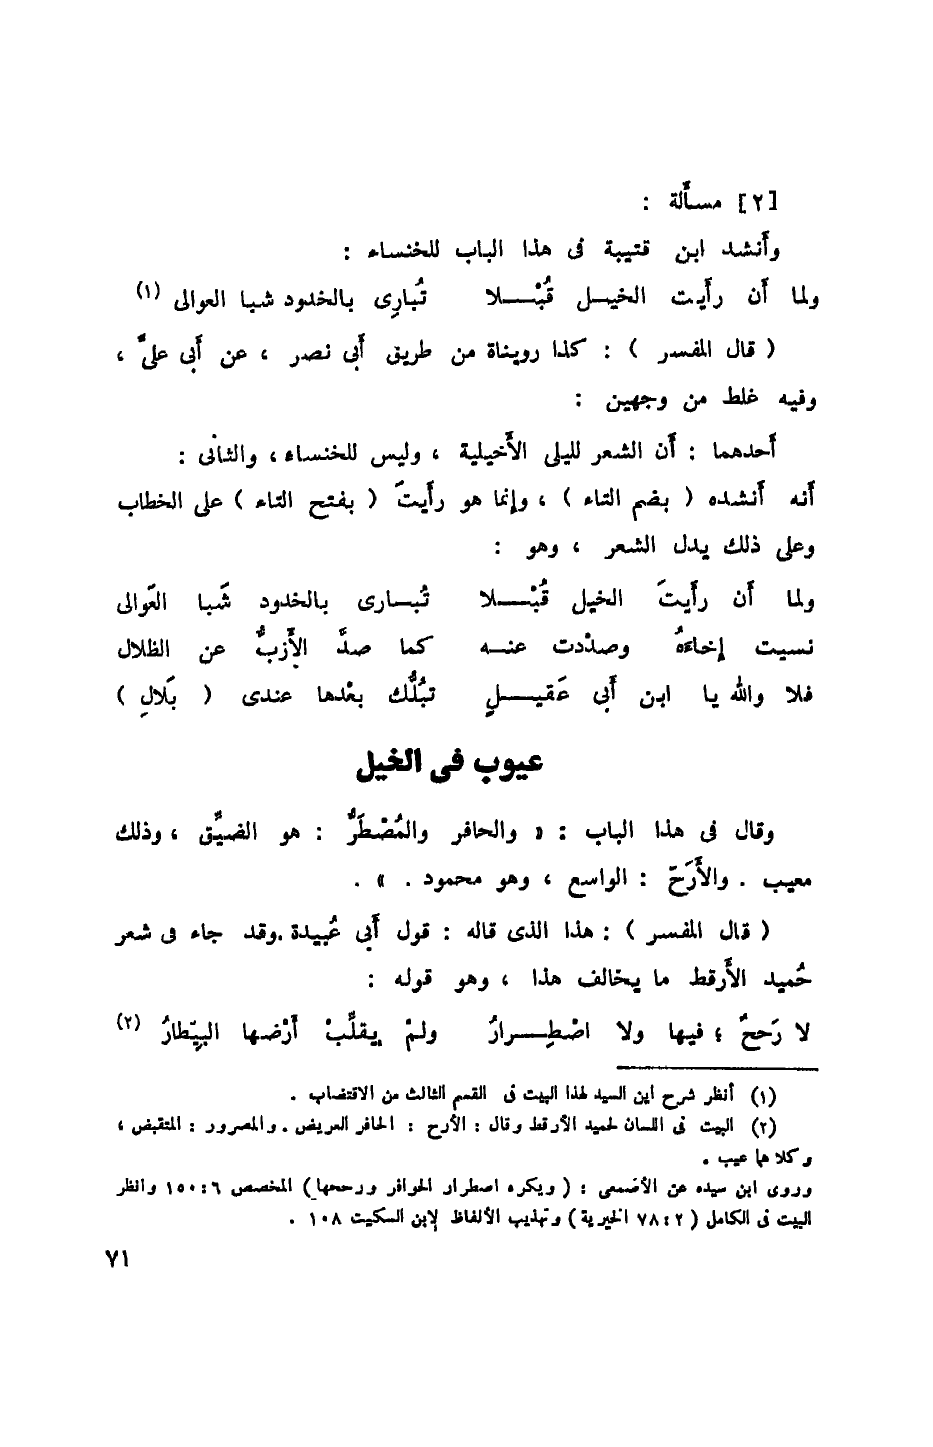 [٢] مسأَلة :
وأَنشد ابن قتيبة فى هذا الباب للخنساء :
ولما أَن رأَيت الخيـل قُبْـــلا تُبارِى بالخدود شبا العوالى (١)
( قال المفسر ) : كذا رويناة من طريق أَبى نصر ، عن أَبى علىّ ،
وفيه غلط من وجهين :
أَحدهما : أَن الشعر لليلى الأَخيلية ، وليس للخنساء ، والثانى :
أَنه أَنشده ( بضم التاء ) ، وإنما هو رأَيتَ ( بفتح التاء ) على الخطاب
وعلى ذلك يدل الشعر ، وهو :
ولما أَن رأَيتَ الخيل قُبْـــلا تُبـارى بالخدود شَبا العَوالى
نسيت إخاءَهُ وصدْدت عنـه كما صدَّ الأَزبُّ عن الظلال
فلا والله يا ابن أَبى عَقيـــلٍ تبُلُّك بعْدها عندى ( بَلالِ )
عيوب فى الخيل
وقال فى هذا الباب : « والحافر والمُصْطَرُّ : هو الضيِّق ، وذلك
معيب . والأَرَحّ : الواسع ، وهو محمود . » .
( قال المفسر ) : هذا الذى قاله : قول أَبى عُبيدة .وقد جاء فى شعر
حُميد الأَرقط ما يخالف هذا ، وهو قوله :
لا رَححٌ ؛ فيها ولا اصْطِـــرارُ ولمْ يقلِّبْ أَرْضها البيِّطارُ (٢)
(١) أنظر شرح ابن السيد لهذا البيت فى القسم الثالث من الاقتضاب .
(٢) البيت فى اللسان لحميد الأرقط وقال : الأرح : الحافر العريض . والمصرور : المتقبض ،
وكلاهما عيب .
وروى ابن سيده عن الأصمعى : ( ويكره اصطرار الحوافر ورححها) المخصص ٦:١٥٠ وانظر
البيت فى الكامل ( ٢:٧٨ الخيرية ) وتهذيب الألفاظ لابن السكيت ١٠٨ .
٧١